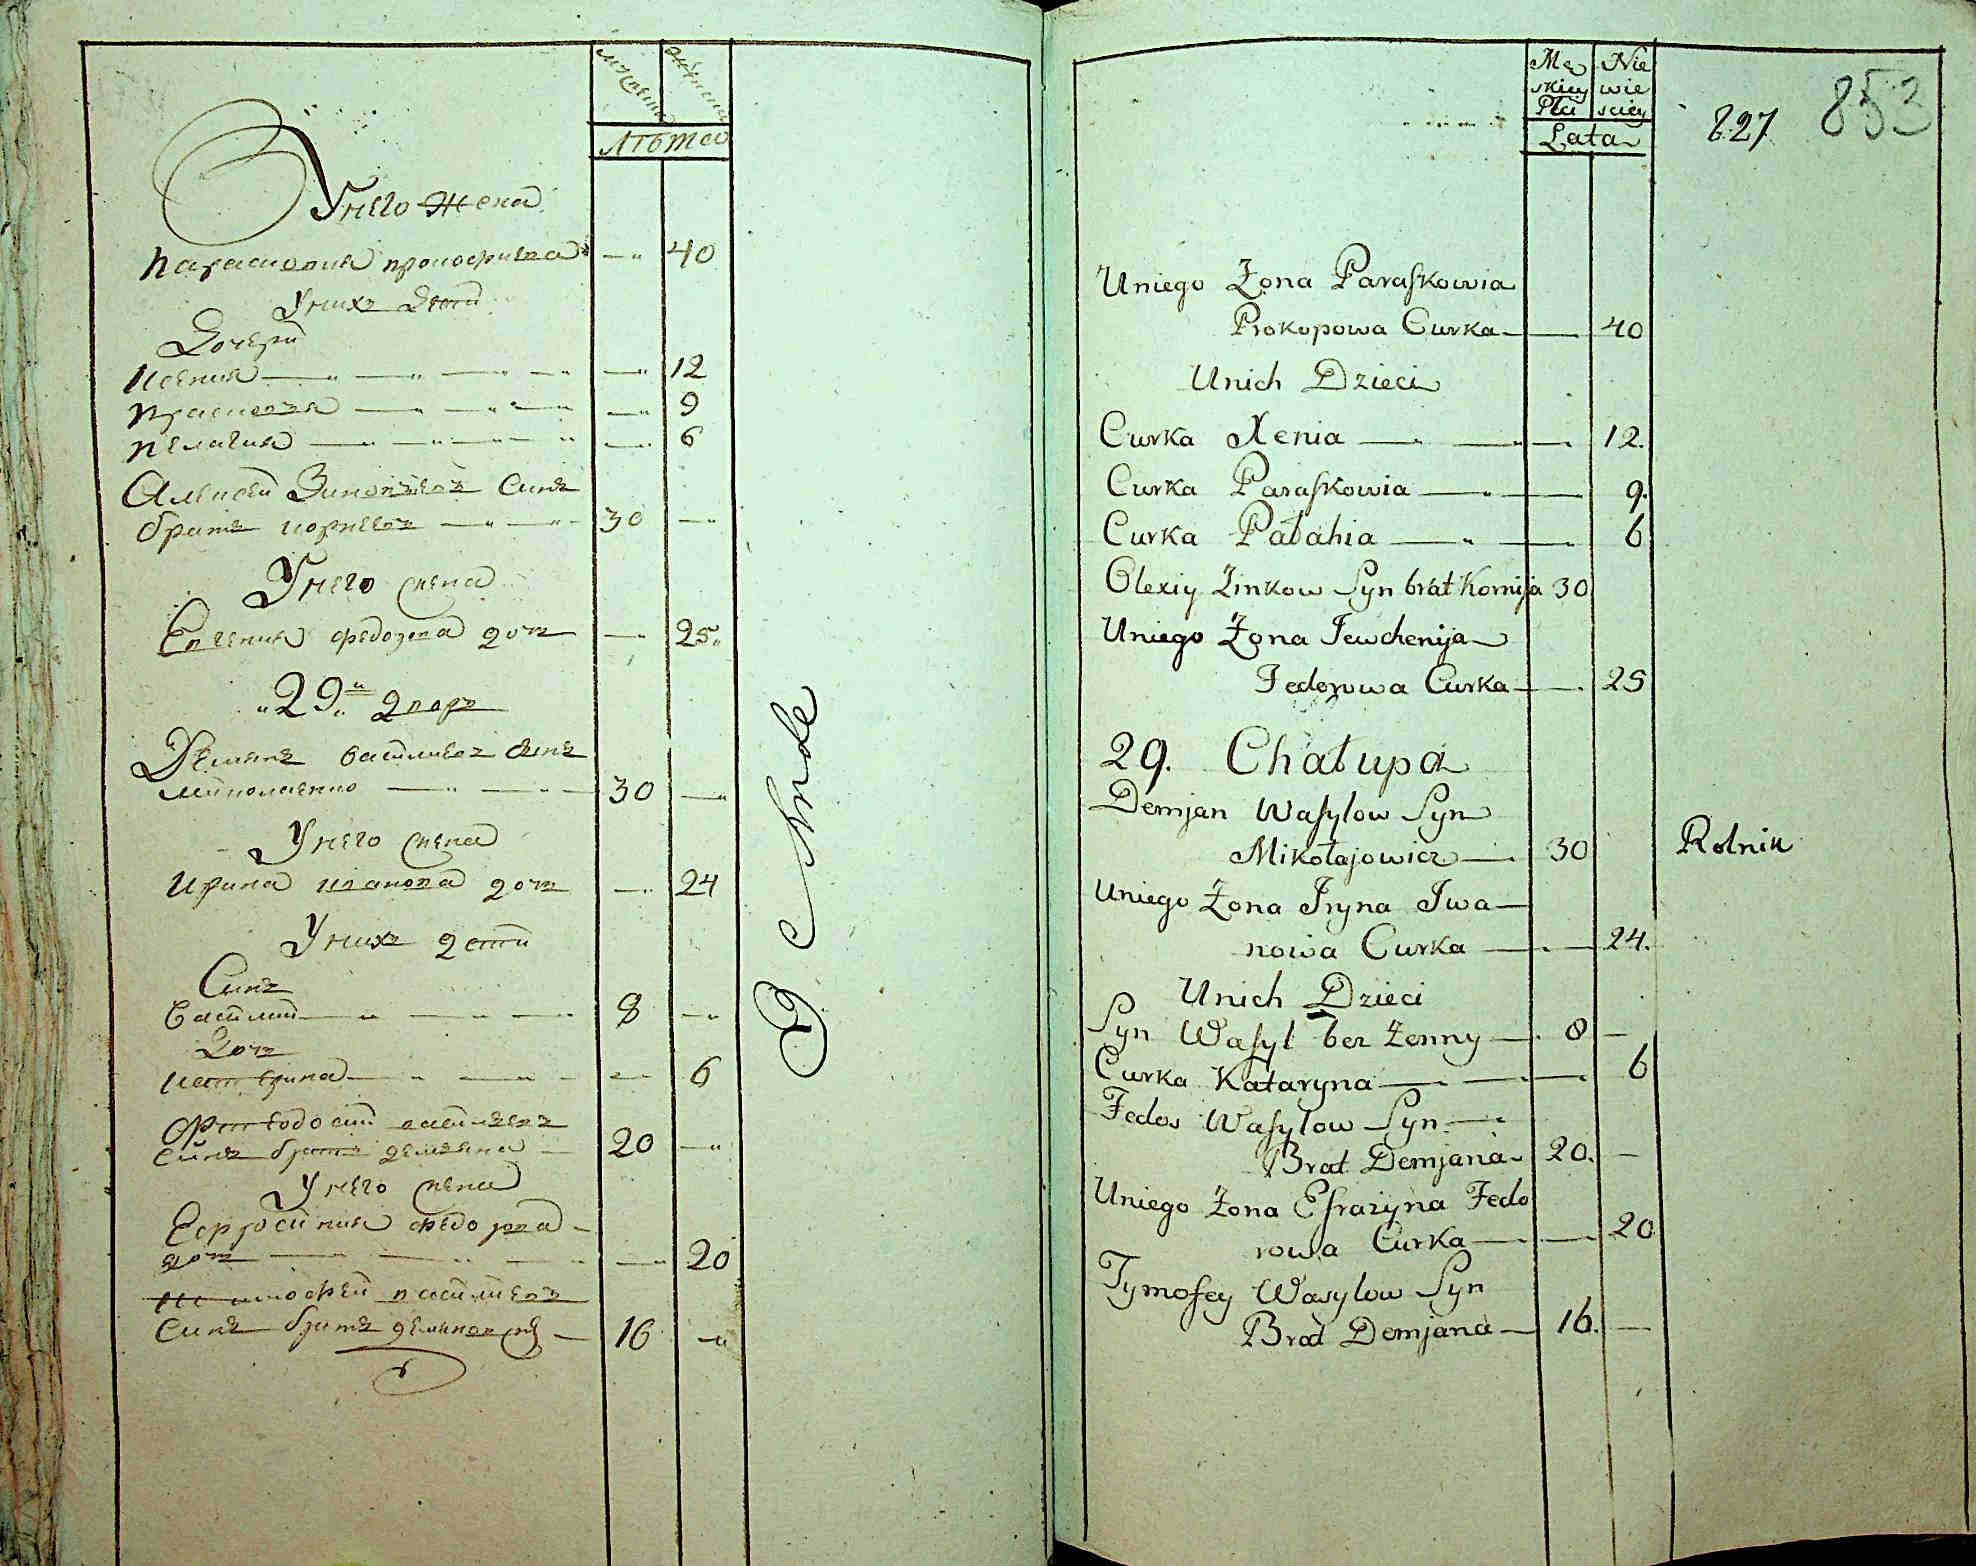 Лѣта
У него жена
Парасковия Прокофиева 40
У них дети
Дочери
Ксения 12
Прасковя 9
Пелагия 6
Алексей Зиновѣев Синъ
братъ Корнѣев 30
У него жена
Евгения Федорова доч 25
29й двор
Демянъ Василиев Синъ
Миколаенко 30
У него жена
Ирина Иванова доч 24
У них дети
Синъ
Василий 8
Доч
Катерина 6
Федосий Василиев
Синъ братъ Демяна 20
У него жена
Ефросиния Федорова
доч 20
Тимофей Василиев
Синъ братъ Демянов же 16
Mę Nie
skiey wie
Płci sciey
Lata
827 853
Uniego Żona Paraskowia
Prokopowa Curka 40
Unich Dzieci
Curka Xenia 12.
Curka Paraskowia 9.
Curka Pałahia 6
Olexiy Zinkow Syn brat Kornija 30
Uniego Żona Jewchenija
Fedorowa Curka 25
29. Chałupa
Demjan Wasylow Syn
Mikołajowicz 30 Rolnik
Uniego Żona Iryna Iwa
nowa Curka 24.
Unich Dzieci
Syn Wasyl bez Żenny 8
Curka Kataryna 6
Fedos Wasylow Syn
Brat Demjana 20.
Uniego Żona Efrazyna Fedo
rowa Curka 20
Tymofey Wasylow Syn
Brat Demjana 16.